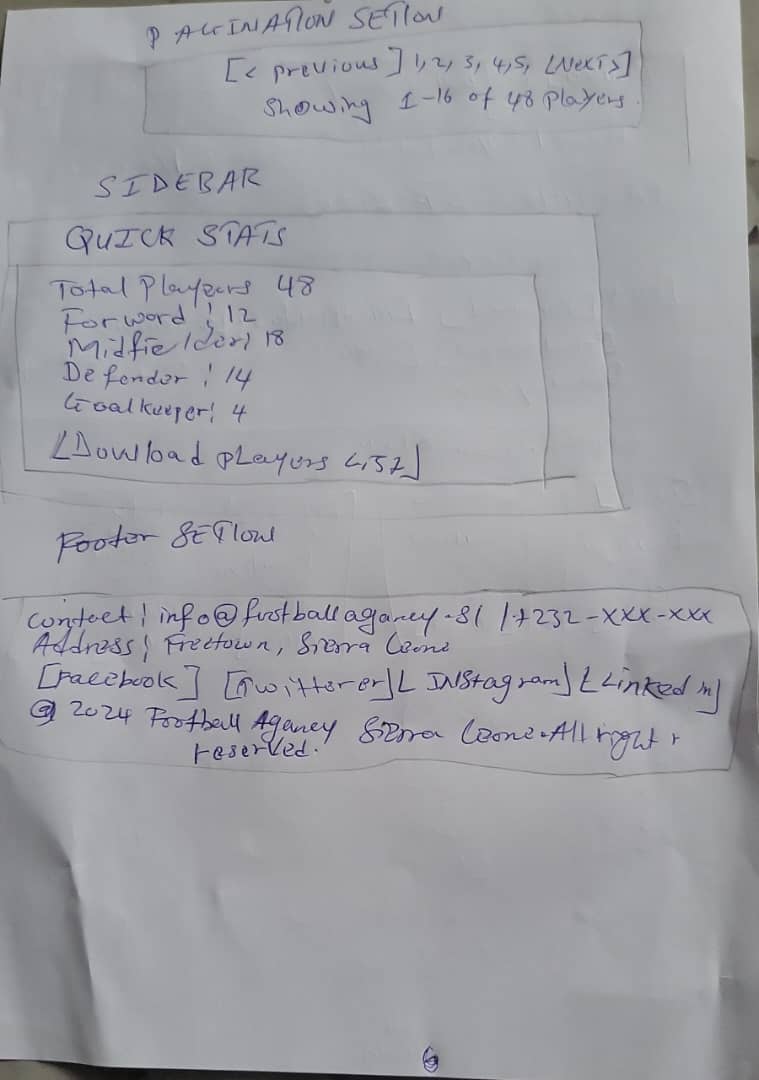 PAGINATION SETION
[< previous] 1, 2, 3, 4, 5, [Next>]
Showing 1-16 of 48 players.
SIDEBAR
QUICK STATS
Total Players 48
Forword : 12
Midfielder: 18
Defender : 14
Goalkeeper: 4
[Dowload players List]
Footer SETION
contact: info@footballagancy.sl /+232-xxx-xxx
Address: Freetown, Sierra Leone
[Facebook] [Twitterer] [INStagram] [Linked in]
@ 2024 Football Agancy Sierra Leone. All right r
reserved.
6